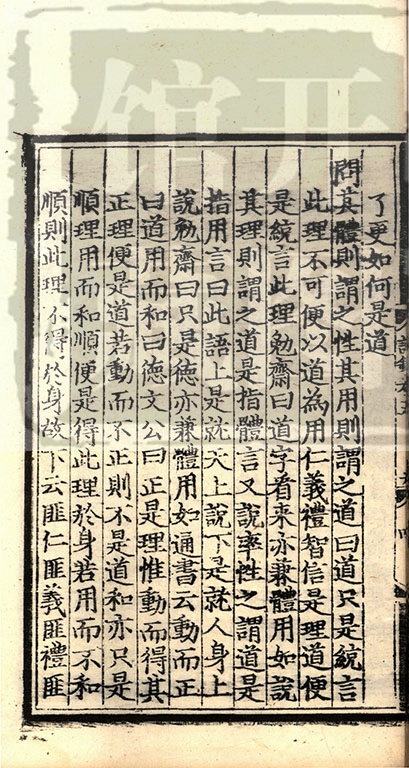 了更如何是道
問其體則謂之性其用則謂之道曰道只是統言
此理不可便以道為用仁義禮智信是理道便
是統言此理勉齋曰道字看來亦兼體用如說
其理則謂之道是指體言又說率性之謂道是
指用言曰此語上是就天上說下是就人身上
說勉齋曰只是德亦兼體用如通書云動而正
曰道用而和曰德文公曰正是理惟動而得其
正理便是道若動而不正則不是道和亦只是
順理用而和順便是得此理於身若用而不和
順則此理不得於身故下云匪仁匪義匪禮匪